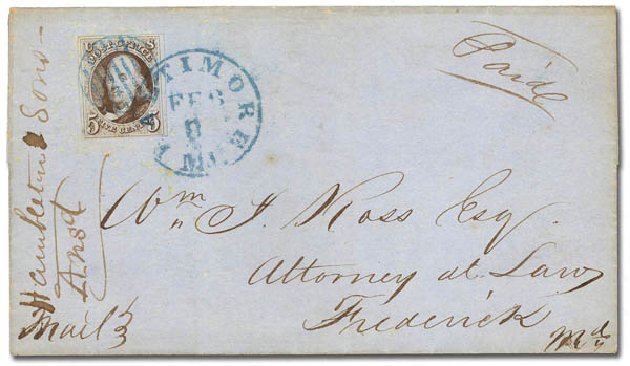 POST OFFICE
5 5
FIVE CENTS
BALTIMORE
FEB
8
Md.
Paid
Wm J. Ross Esq.
Attorney at Law
Frederick
Md
Hambleton & Sons
Ansd
Mail